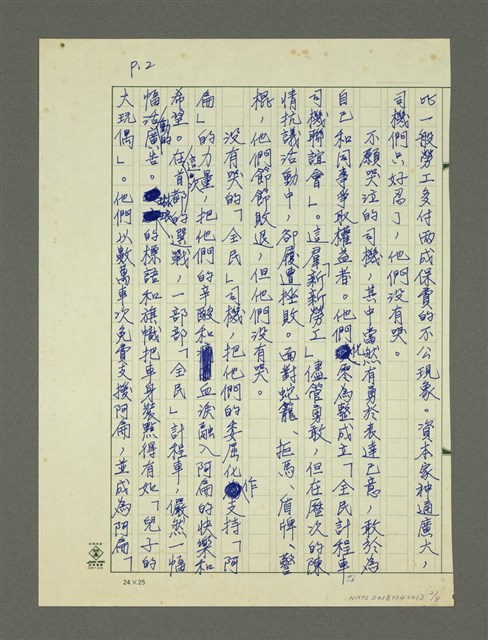 p.2
比一般勞工多付兩成保費的不公現象。資本家神通廣大，
司機們只好忍了，他們沒有哭。
不願哭泣的司機，其中當然有勇於表達己意，敢於為
自己和同事爭取權益者。他們化零為整成立「全民計程車
司機聯誼會」。這羣「新新勞工」儘管勇敢，但在歷次的陳
情抗議活動中，卻屢遭挫敗。面對蛇籠、拒馬、盾牌、警
棍，他們節節敗退，但他們沒有哭。
沒有哭的「全民」司機，把他們的委屈化作支持「阿
扁」的力量，把他們的辛酸和血淚融入阿扁的快樂和
希望。在首都的這次選戰，一部部「全民」計程車，儼然一幅
幅活動的廣告。琳琅的標語和旗幟把車身裝點得有如「兒子的
大玩偶」。他們以數萬車次免費支援阿扁，並成為阿扁「
24×25
NMTL20180040013 2/4